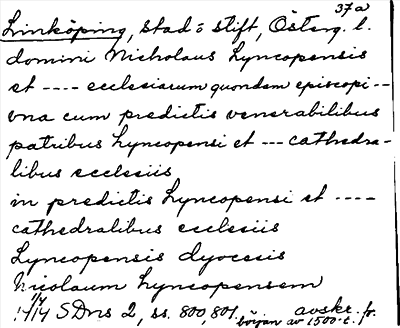 37a
Linköping, stad o stift, Österg. l.
domini Nicholaus Lyncopensis
et ---- ecclesiarum quondam episcopi --
vna cum predictis venerabilibus
patribus Lyncopensi et --- cathedra-
libus ecclesiis
in predictis Lyncopensi et ----
cathedralibus ecclesiis
Lyncopensis dyocesis
Nicolaum Lyncopensem
1/4
1414 SDns 2, ss. 800,801. avskr. fr.
början av 1500-t.